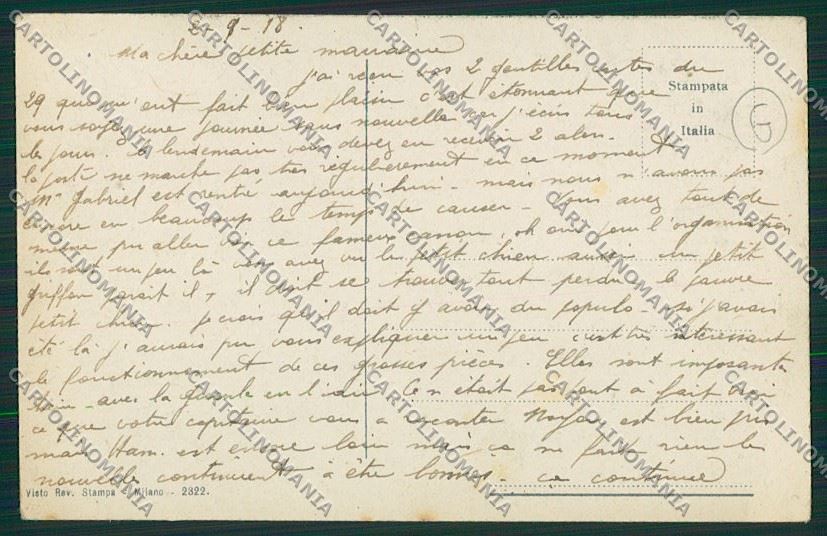 2-9-18.
Ma chère petite marraine
j'ai reçu vos 2 gentilles cartes du
29 qui m'ont fait bien plaisir c'est étonnant que
vous soyez une journée sans nouvelle car j'écris tous
les jours. Le lendemain vous devez en recevoir 2 alors.
la poste ne marche pas très régulièrement en ce moment
Mr Gabriel est rentré aujourd'hui - mais nous n'avons pas
encore eu beaucoup le temps de causer - Vous avez tout de
même pu aller voir ce fameux canon, oh oui pour l'organisation
ils sont un peu là vous avez vu le petit chien aussi un petit
griffon paraît il, il doit se trouver tout perdu le pauvre
petit chien. je crois qu'il doit y avoir du populo - si j'avais
été là j'aurais pu vous expliquer un peu c'est très intéressant
le fonctionnement de ces grosses pièces. Elles sont imposantes
avec la gueule en l'air. Ce n'était pas tout à fait vrai
ce que votre capitaine vous a raconter Noyon est bien pris
mais Ham. est encore loin mais ça ne fait rien les
nouvelle continuent à être bonnes - ça continue
Stampata
in
Italia
G
Visto Rev. Stampa - Milano - 2322.
CARTOLINOMANIA